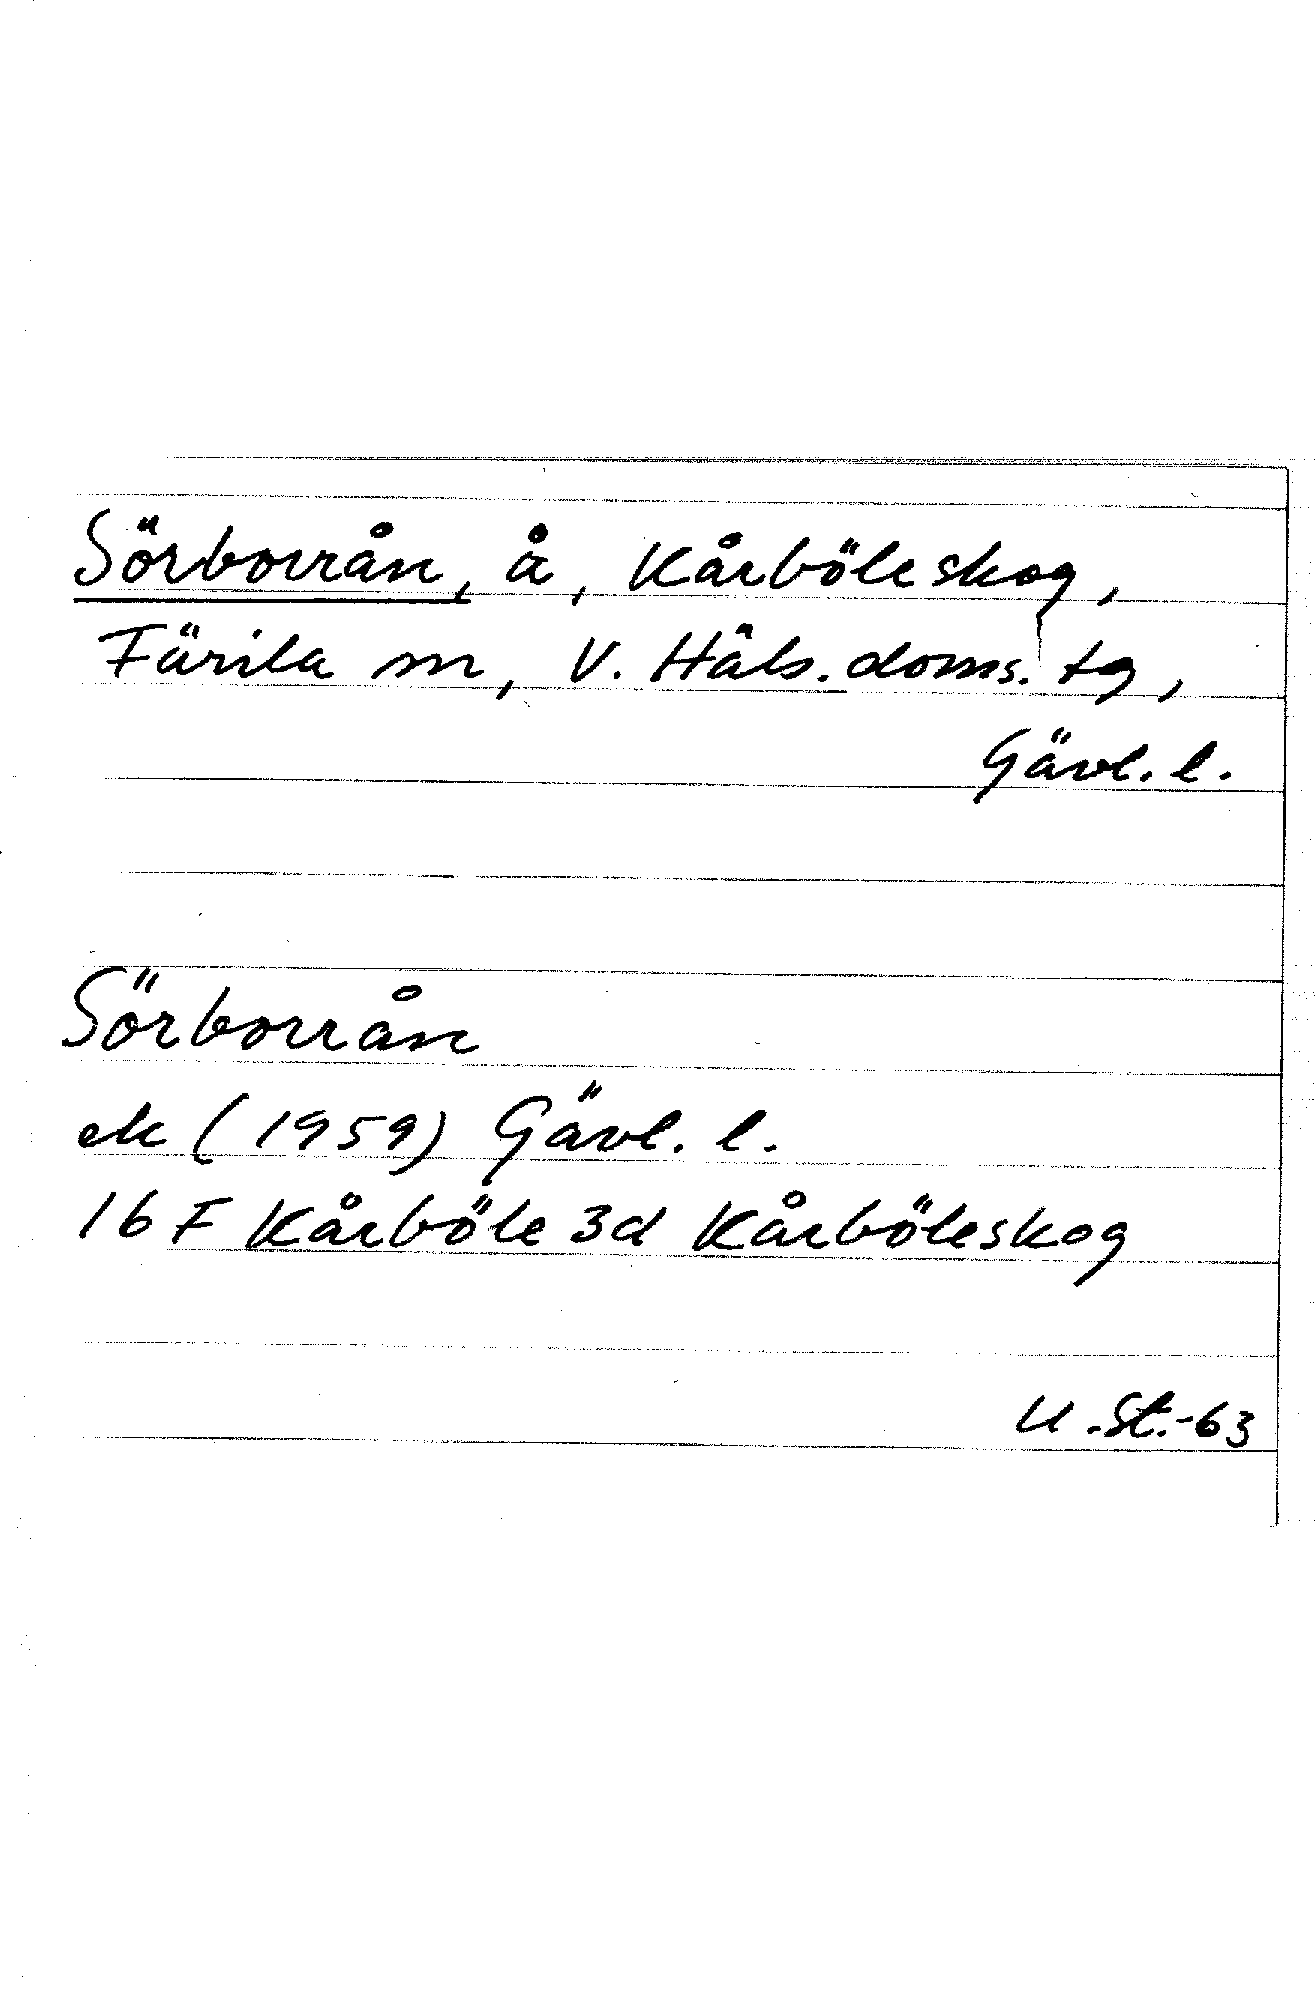 Sörborrån, å, Kårböleskog,
Färila sn, V. Häls. doms. tg,
Gävl. l.
Sörborrån
ek (1959) Gävl. l.
16 F Kårböle 3d Kårböleskog
U.St.-63